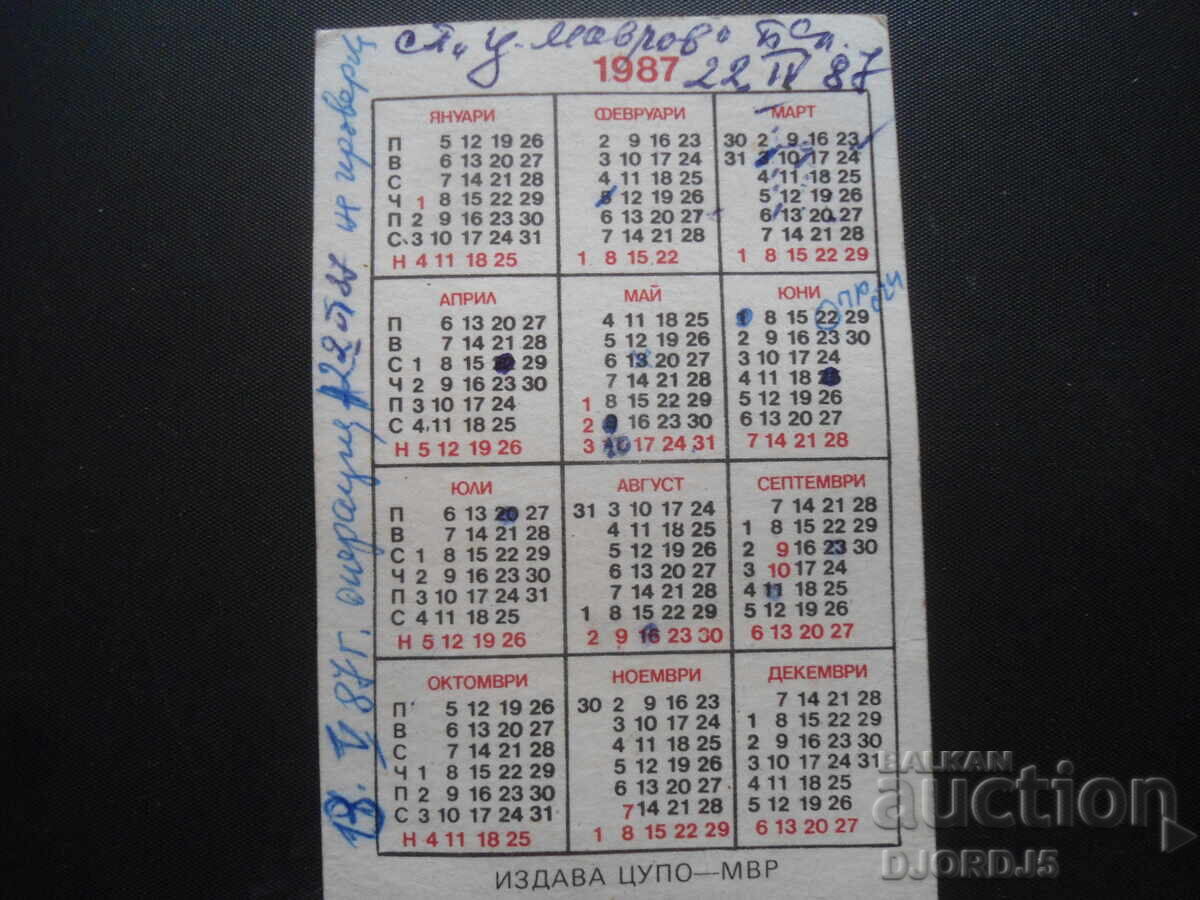 1987
22 IV 87
ЯНУАРИ
П 5 12 19 26
В 6 13 20 27
С 7 14 21 28
Ч 1 8 15 22 29
П 2 9 16 23 30
С 3 10 17 24 31
Н 4 11 18 25
ФЕВРУАРИ
2 9 16 23
3 10 17 24
4 11 18 25
5 12 19 26
6 13 20 27
7 14 21 28
1 8 15 22
МАРТ
30 2 9 16 23
31 3 10 17 24
4 11 18 25
5 12 19 26
6 13 20 27
7 14 21 28
1 8 15 22 29
АПРИЛ
П 6 13 20 27
В 7 14 21 28
С 1 8 15 29
Ч 2 9 16 23 30
П 3 10 17 24
С 4 11 18 25
Н 5 12 19 26
МАЙ
4 11 18 25
5 12 19 26
6 13 20 27
7 14 21 28
1 8 15 22 29
2 9 16 23 30
3 10 17 24 31
ЮНИ
1 8 15 22 29
2 9 16 23 30
3 10 17 24
4 11 18
5 12 19 26
6 13 20 27
7 14 21 28
ЮЛИ
П 6 13 20 27
В 7 14 21 28
С 1 8 15 22 29
Ч 2 9 16 23 30
П 3 10 17 24 31
С 4 11 18 25
Н 5 12 19 26
АВГУСТ
31 3 10 17 24
4 11 18 25
5 12 19 26
6 13 20 27
7 14 21 28
1 8 15 22 29
2 9 16 23 30
СЕПТЕМВРИ
7 14 21 28
1 8 15 22 29
2 9 16 23 30
3 10 17 24
4 11 18 25
5 12 19 26
6 13 20 27
ОКТОМВРИ
П 5 12 19 26
В 6 13 20 27
С 7 14 21 28
Ч 1 8 15 22 29
П 2 9 16 23 30
С 3 10 17 24 31
Н 4 11 18 25
НОЕМВРИ
30 2 9 16 23
3 10 17 24
4 11 18 25
5 12 19 26
6 13 20 27
7 14 21 28
1 8 15 22 29
ДЕКЕМВРИ
7 14 21 28
1 8 15 22 29
2 9 16 23 30
3 10 17 24 31
4 11 18 25
5 12 19 26
6 13 20 27
ИЗДАВА ЦУПО—МВР
18. V 87 г. операция
BALKAN
auction
DJORDJ5